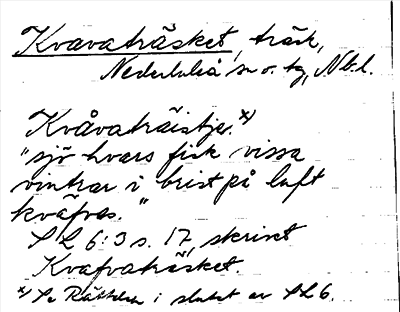 Kvavaträsket, träsk,
Nederluleå sn o. tg, Nb.l.
Kvåvaträistje.x)
"sjö hvars fisk vissa
vintrar i brist på luft
kväfves."
SL 6:3 s. 17, skrivet
Kvafvaträsket.
x) Se Rättelser i slutet av SL 6.